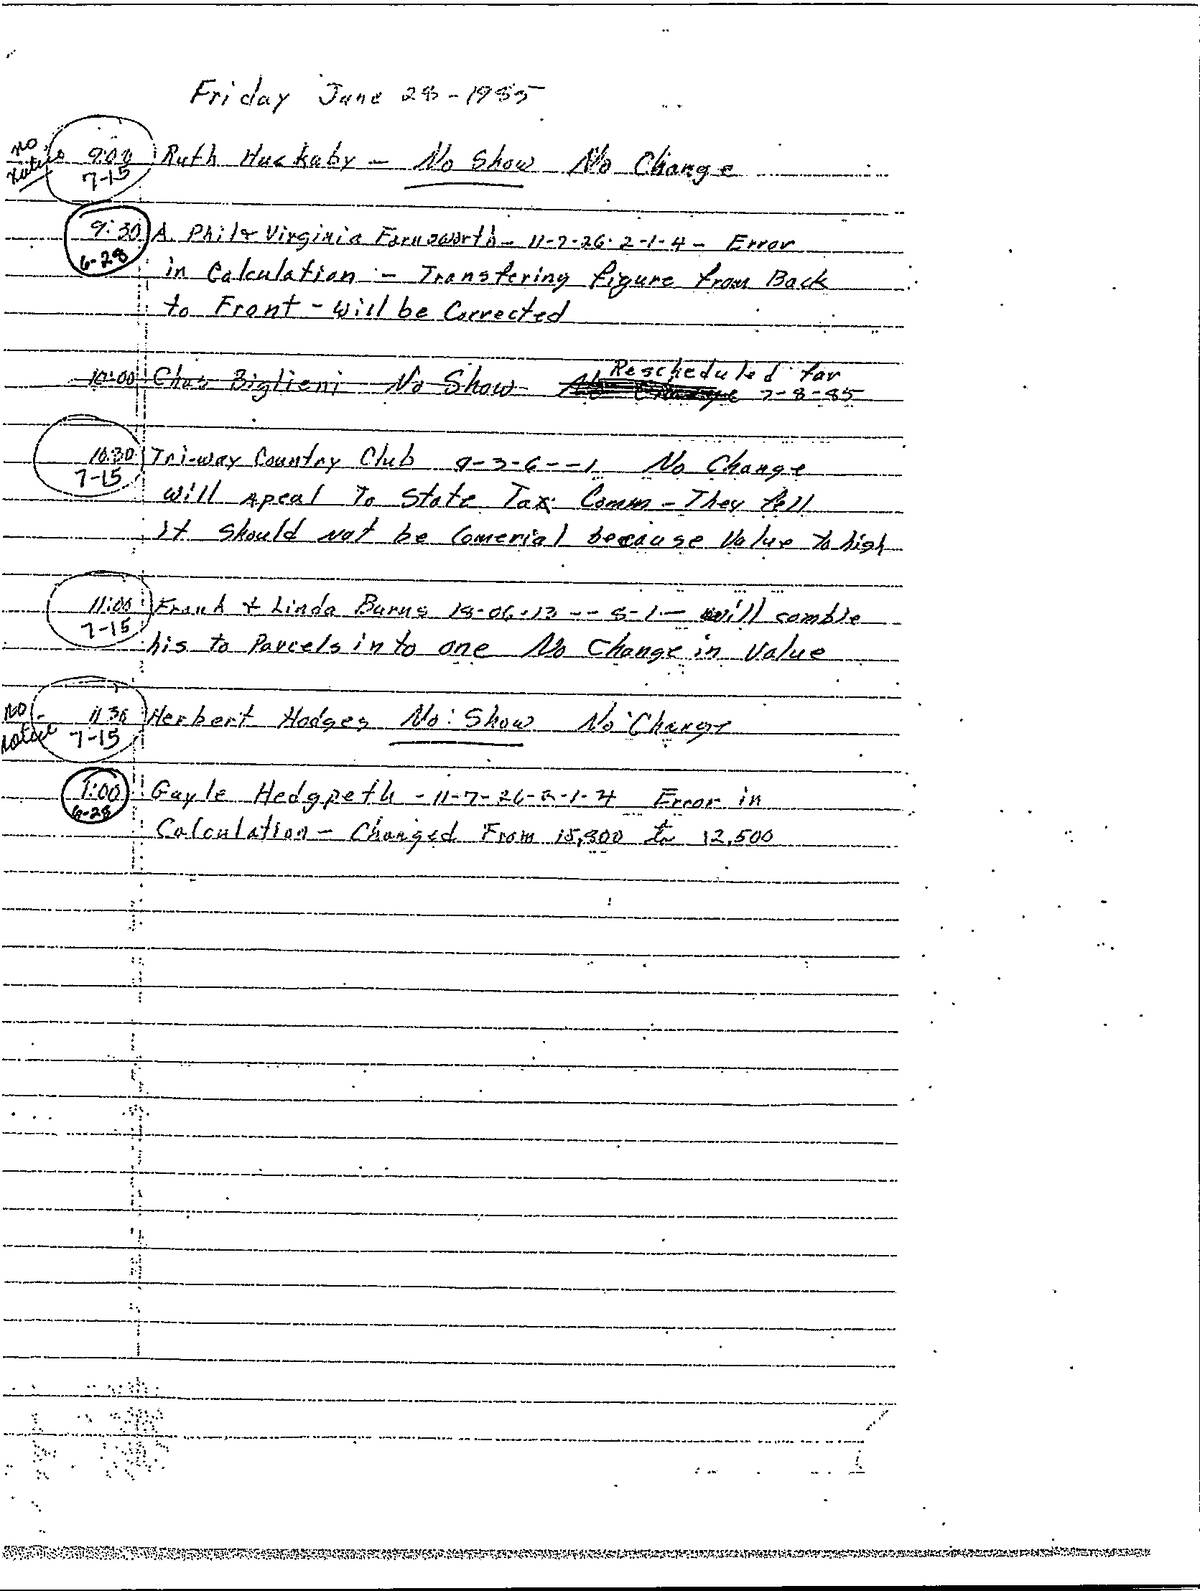 Friday June 28-1985
No
Notice
9:00 Ruth Huckaby - No Show No Change
7-15
9:30 A. Phil & Virginia Farnsworth - 11-7-26-2-1-4 - Error
6-28
in Calculation - Transfering figure from Back
to Front - will be Corrected
Rescheduled for
10:00 Chas Biglieni No Show No Change 7-8-85
10:30 Tri-way Country Club 9-3-6--1 No Change
7-15
will Apeal To State Tax Comm - They fell
it should not be Comerial because Value to high
11:00 Frank & Linda Burns 18-06-13--8-1- will comble
7-15
his to Parcels in to one No Change in Value
No
Notice
11 30 Herbert Hodges No Show No Change
7-15
1:00 Gayle Hedgpeth - 11-7-26-2-1-4 Error in
6-28
Calculation - Changed From 15,800 to 12,500